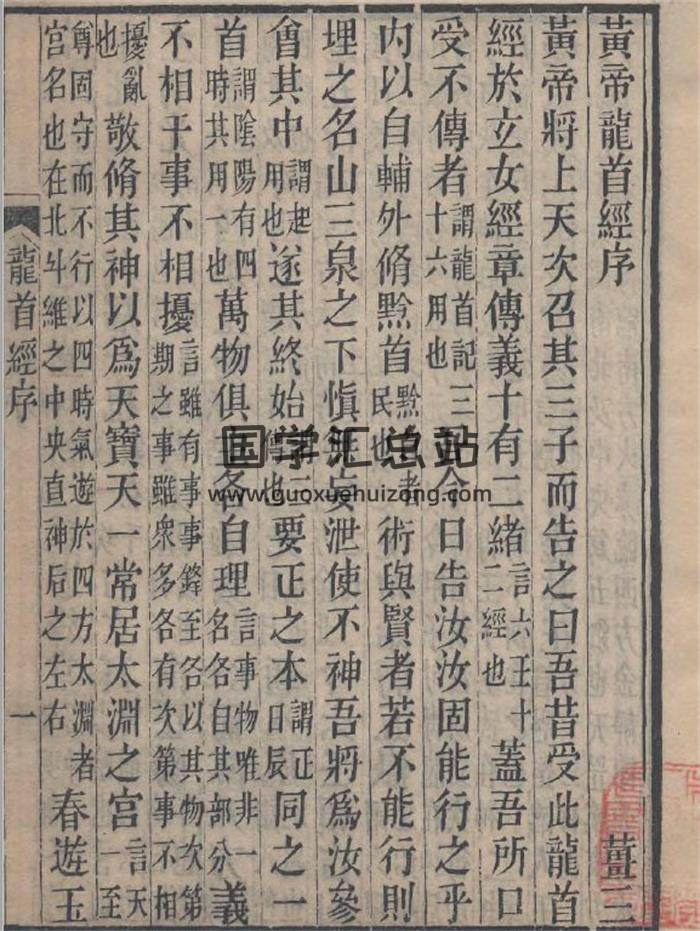 黃帝龍首經序 薑三
黃帝將上天次召其三子而告之曰吾昔受此龍首
經於玄女經章傳義十有二緒言六壬十二經也蓋吾所口
受不傳者謂龍首記三十六用也吾今日告汝汝固能行之乎
內以自輔外脩黔首黔首者民也術與賢者若不能行則
埋之名山三泉之下慎無妄泄使不神吾將為汝參
會其中謂起用也遂其終始謂二傳也要正之本謂正日辰同之一
首謂陰陽有四時其用一也萬物俱生各自理言事物唯非一名各自其部分義
不相干事不相擾言雖有事事鋒至各以其物次第期之事雖衆多各有次第事不相
擾亂也敬脩其神以為天寶天一常居太淵之宮言天一至
尊固守而不行以四時氣遊於四方太淵者宮名也在北斗維之中央直神后之左右春遊玉
龍首經序 一
国学汇总站
www.guoxuehuizong.com